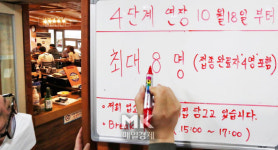 4단계 연장 10월 18일 부터
최대 8 명 (접종완료자"4명"포함)
• 저희 담고 있습니다.
• Bre (15:00 ~ 17:00)
MK
매일경제